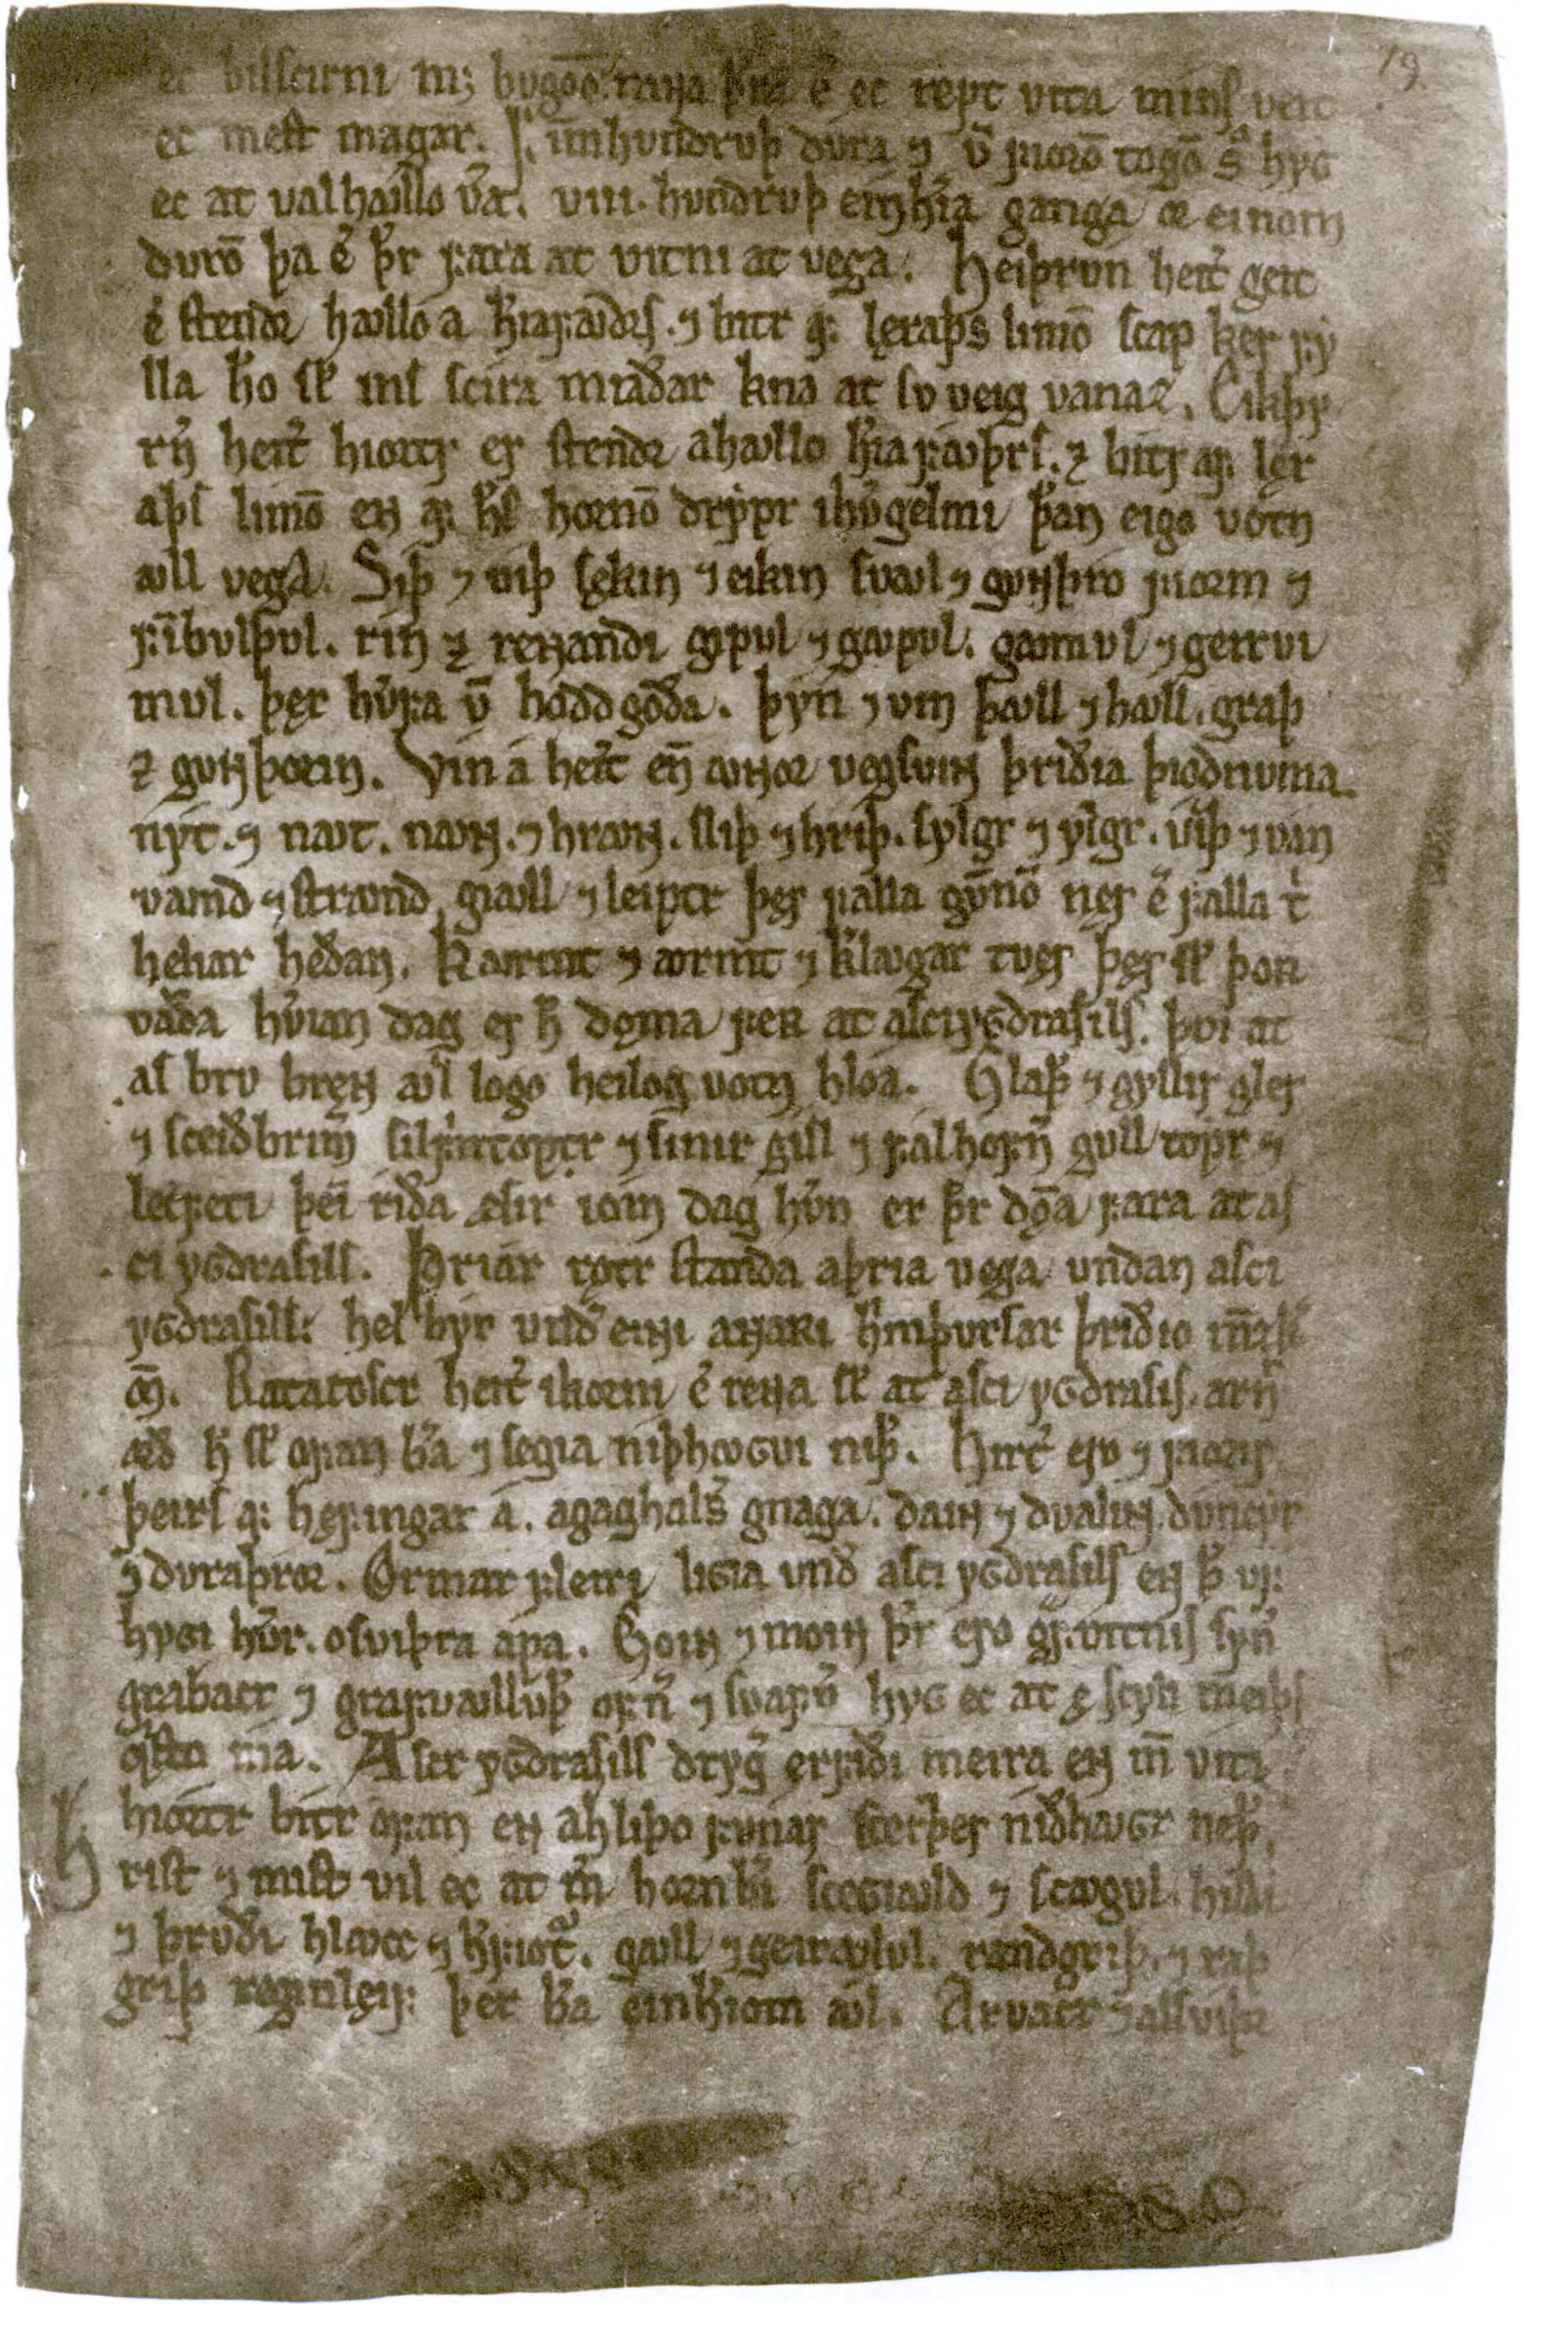 19.
ec bilscirni m; bvgōō. ranna þra ē ec rept vita mins veit
ec mest magar. F. im hvndrvþ dura ⁊ ū fiorō togō sa hyc
ec at valhꜹllo ūa. viii. hvndrvþ einh̄ia ganga ór einom
durō þa ē þr fara at vitni at vega. Heiþrvn heit̄ geit
ē stendr hꜹllo a h̄iafꜹdrs. ⁊ bitr af lęraþs limō scap ker fy
lla h̄o sk̄ ins scira miaðar kna at sv veig vanaz. Eikþy
rn̄ heit̄ hiortr er stendr a hꜹllo h̄iafꜹþrs. ⁊ bitr af lęr
aþs limō en af h̄s hornō drypr i hv̄gelmi þan eigo votn
ꜹll vega. Siþ ⁊ viþ sękin ⁊ eikin svꜹl ⁊ gvnþro fiorm ⁊
fībulþul. rín ⁊ rennandi gipul ⁊ gꜹpul. gꜹmul ⁊ geirvi
mul. þęr hv̄fa ū hodd goða. þyn ⁊ vin þꜹll ⁊ hꜹll. graþ
⁊ gvnþorin. Vín á heit̄ en̄ ꜹnnor vegsvinn þriðia þiodnvma.
nyt. ⁊ nꜹt. nꜹnn. ⁊ hrꜹnn. sliþ ⁊ hriþ. sylgr ⁊ ylgr. víþ ⁊ ván
vꜹnd ⁊ strꜹnd giꜹll ⁊ leiptr þęr falla gv̄nō nęr ē falla t̄
heliar heðan. Kꜹrmt ⁊ ꜹrmt ⁊ k̄lꜹgar tvęr þęr sk̄ þoʀ
vaða hv̄ian dag er h̄ dǿma feʀ at asci ygdrasils. þvi at
as brv brenn ꜹl logo heilog votn hlóa. Glaþr ⁊ gyllir gler
⁊ sceiðbrim̄ silfrintoptr ⁊ sinir gisl ⁊ falhofn̄ gull topr ⁊
letfeti þeī riða ęsir ióm dag hv̄n er þr dǿa fara at as
ci ygdrasils. Þriár rǿtr standa a þria vega undan asci
ygdrasils. hel býr und einni annaʀi h̄mþursar þriðio m̄zk
m̄. Ratatoscr heit̄ ikorni ē renna sk̄ at asci ygdrasis. arn̄
orð h̄ sk̄ ofan b̄a ⁊ segia niþhꜹgvi niþr. Hirt̄ ero ⁊ fiorir
þeirs af hęfingar á. agaghals̄ gnaga. dain ⁊ dvalinn. dvneyr
⁊ dvraþror. Ormar fleiri ligia und asci ygdrasils en þ uf
hygi hv̄r. osviþra apa. Goin ⁊ moin þr ero grafvitnis syn̄
grabacr ⁊ grafvꜹlluþr ofn̄ ⁊ svafn̄ hyg ec at ę scyli meiþs
qisto má. Ascr ygdrasils drygr erfiði meira en m̄ viti
hiortr bitr ofan en a hliþo funar scerþer niðhꜹgr neþan
h
rist ⁊ mist vil ec at m̄ horn b̄i scegiꜹld ⁊ scꜹgul. hildi
⁊ þrvði hlꜹcc ⁊ h̄fiot̄. gꜹll ⁊ geirꜹlul. randgriþ. ⁊ raþ
griþ reginleif þer b̄a einh̄iom ꜹl. Arvacr ⁊ alsviþr